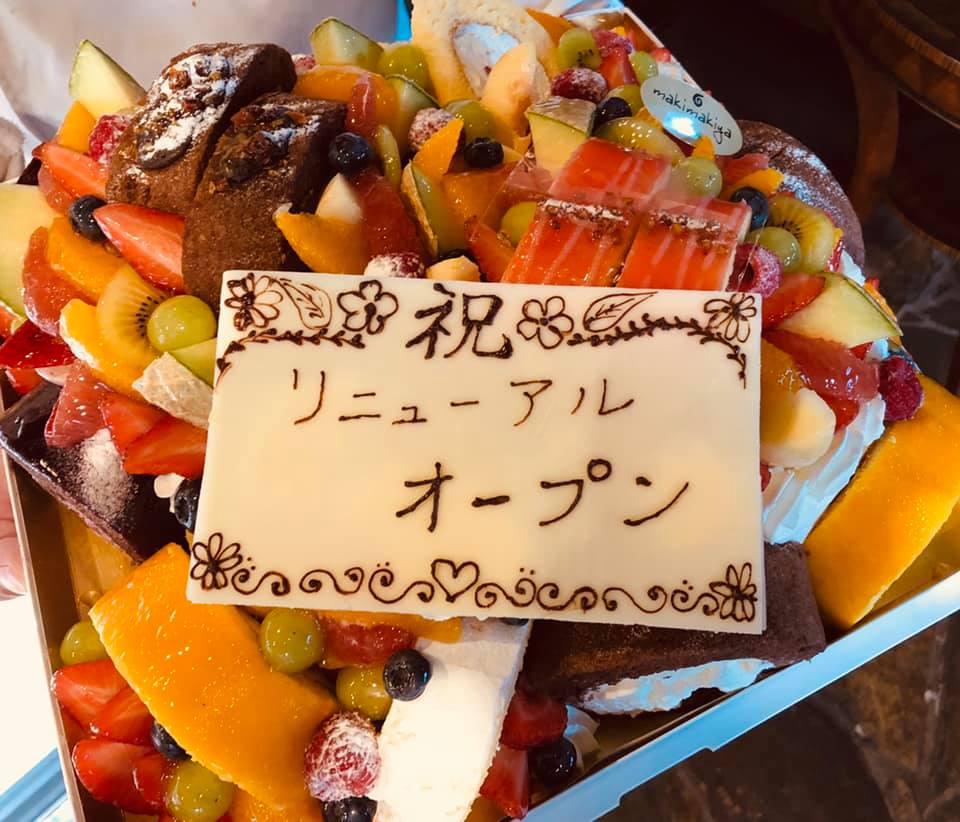 makimakiya
祝
リニューアル
オープン